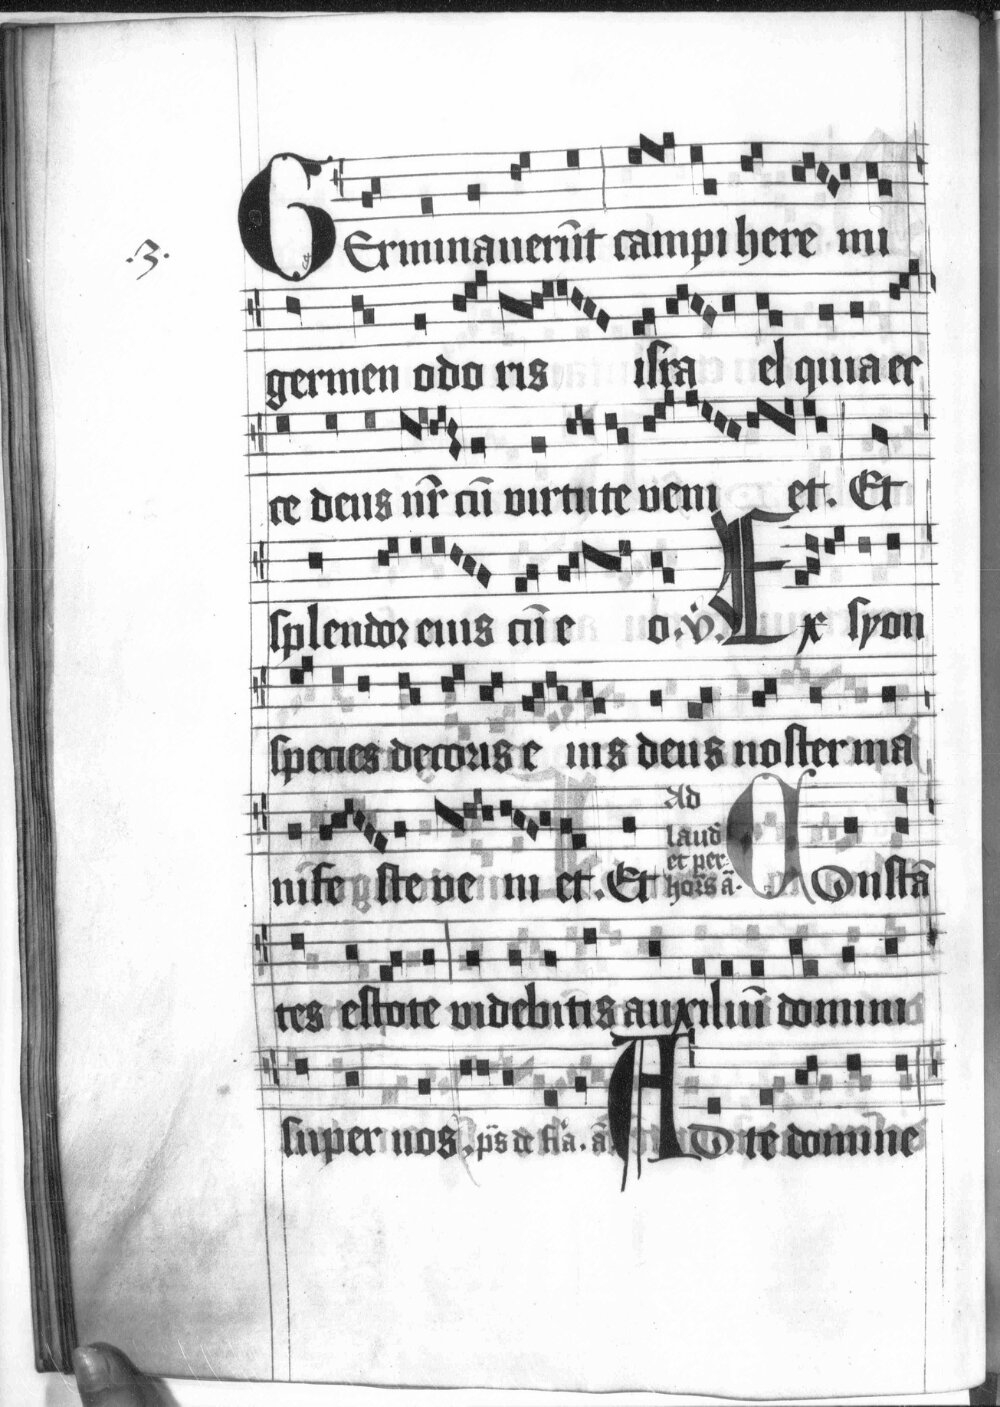 .3.
GErminauerūt campi here mi
germen odo ris isra el quia ec
ce deus nr̄ cū virtute veni et. Et
splendor eius cū e o. v̇. Ex syon
species decoris e ius deus noster ma
nife ste ve ni et. Et Ad laud̄ et per hor̄s ā. COnstā
tes estote videbitis auxiliū domini
super nos. ps̄ de fīa. ā AD te domine